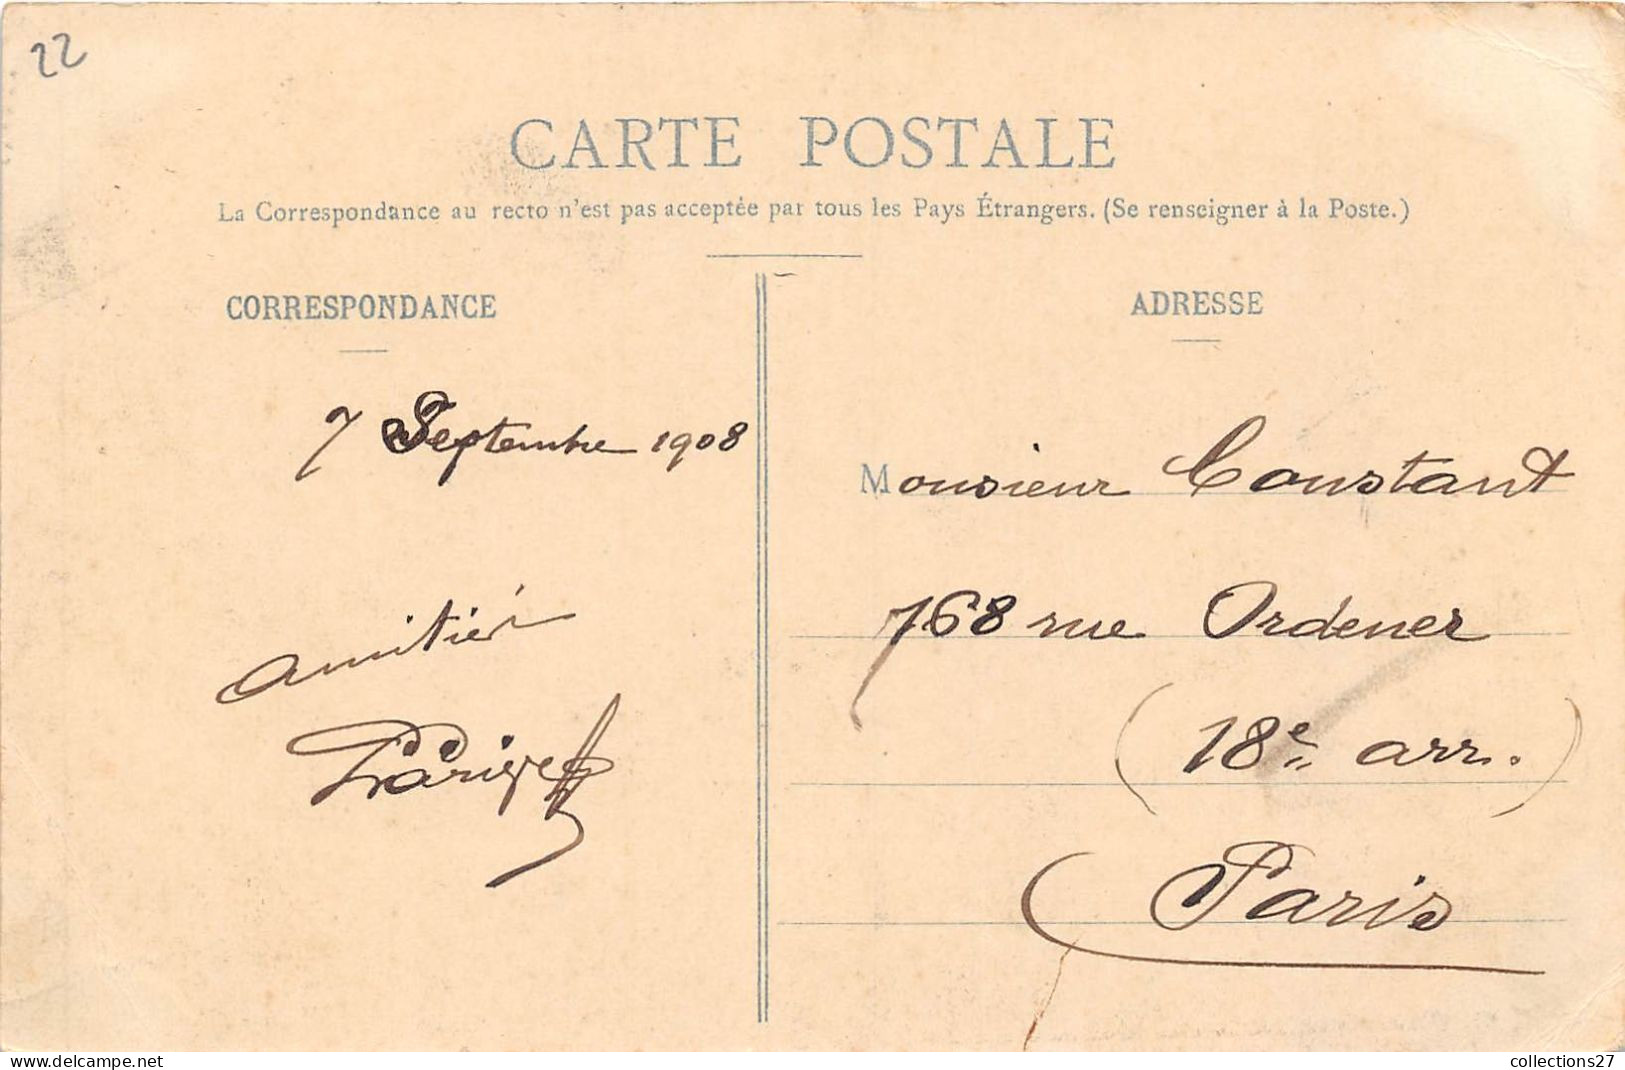 22
CARTE POSTALE
La Correspondance au recto n'est pas acceptée par tous les Pays Étrangers. (Se renseigner à la Poste.)
CORRESPONDANCE
7 Septembre 1908
amitiés
ADRESSE
Monsieur Constant
168 rue Ordener
(18e arr.)
Paris
www.delcampe.net
collections27